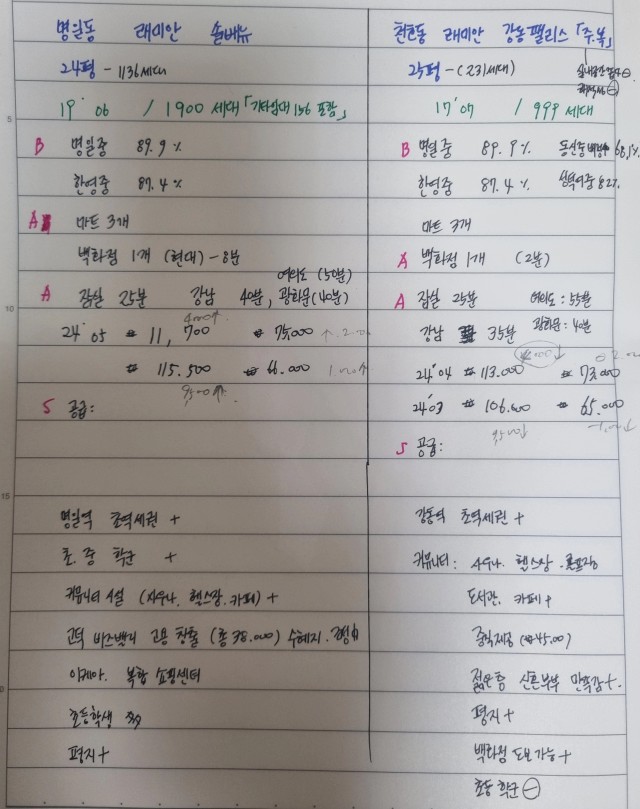 명일동 래미안 솔베뉴
24평 - 1136세대
19' 06 / 1900 세대 「기타임대 156 포함」
B 명일중 89.9%
한영중 87.4%
A 마트 3개
백화점 1개 (현대) - 8분
여의도 (50분)
A 잠실 25분 강남 40분, 광화문(40분)
24' 05 # 11, 700 # 75,000
# 115.500 # 66.000
S 공급:
명일역 초역세권 +
초.중 학군 +
커뮤니티 시설 (사우나. 헬스장. 카페) +
고덕 비즈밸리 고용 창출 (총 38.000) 수혜지.
이케아. 복합 쇼핑센터
초등학생
평지 +
천호동 래미안 강동팰리스 「주.복」
25평 - (231세대)
17' 07 / 999 세대
B 명일중 89.9% 동신중 68.1%
한영중 87.4% 82%
마트 3개
A 백화점 1개 (2분)
A 잠실 25분 여의도 : 55분
강남 35분 광화문 : 40분
24' 04 # 113.000 # 73.000
24' 03 # 106.000 # 65.000
S 공급:
강동역 초역세권 +
커뮤니티 : 사우나. 헬스장. 골프장
도서관. 카페 +
(45.00)
젊은층 신혼부부 만족감 +.
평지 +
백화점 도보 가능 +
초등 학군 ⊖